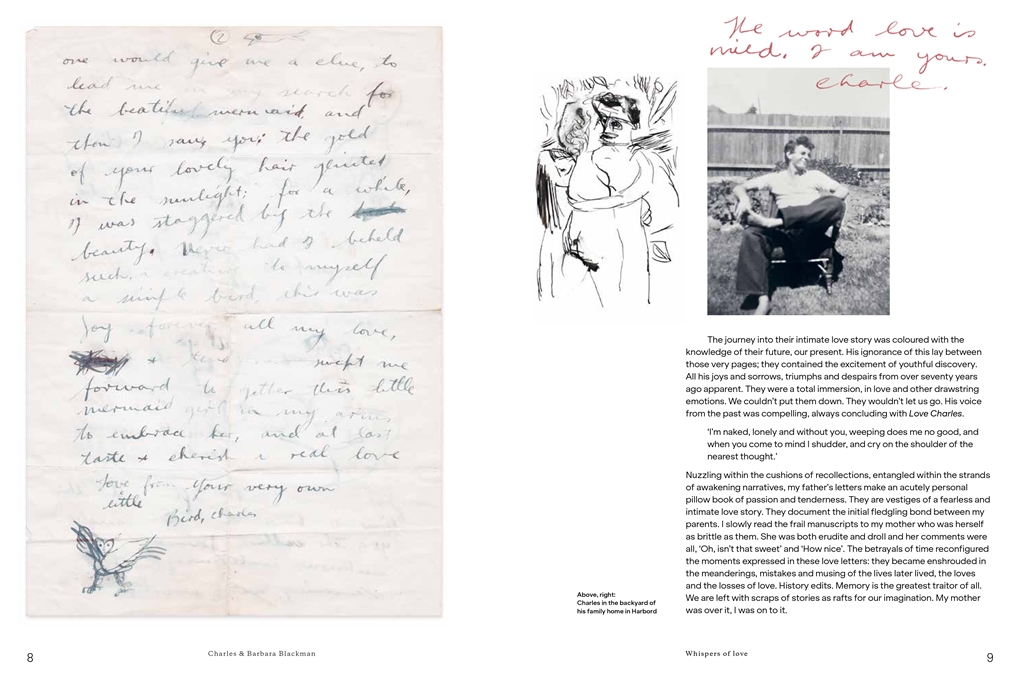 ②
one would give me a clue, to
lead me in my search for
the beatiful mermaid, and
then I saw you; the gold
of your lovely hair glinted
in the sunlight; for a while,
I was staggered by the
beauty. Never had I beheld
such a creature to myself
a simple bird, this was
Joy forever all my love,
& swept me
forward to gether this little
mermaid girl in my arms,
to embrace her, and at last
taste & cherish a real love
Love from Your very own
little
Bird, Charles
8
Charles & Barbara Blackman
The word love is
mild. I am yours.
Charle.
The journey into their intimate love story was coloured with the
knowledge of their future, our present. His ignorance of this lay between
those very pages; they contained the excitement of youthful discovery.
All his joys and sorrows, triumphs and despairs from over seventy years
ago apparent. They were a total immersion, in love and other drawstring
emotions. We couldn't put them down. They wouldn't let us go. His voice
from the past was compelling, always concluding with Love Charles.
'I'm naked, lonely and without you, weeping does me no good, and
when you come to mind I shudder, and cry on the shoulder of the
nearest thought.'
Nuzzling within the cushions of recollections, entangled within the strands
of awakening narratives, my father's letters make an acutely personal
pillow book of passion and tenderness. They are vestiges of a fearless and
intimate love story. They document the initial fledgling bond between my
parents. I slowly read the frail manuscripts to my mother who was herself
as brittle as them. She was both erudite and droll and her comments were
all, 'Oh, isn't that sweet' and 'How nice'. The betrayals of time reconfigured
the moments expressed in these love letters: they became enshrouded in
the meanderings, mistakes and musing of the lives later lived, the loves
and the losses of love. History edits. Memory is the greatest traitor of all.
We are left with scraps of stories as rafts for our imagination. My mother
was over it, I was on to it.
Above, right:
Charles in the backyard of
his family home in Harbord
Whispers of love
9